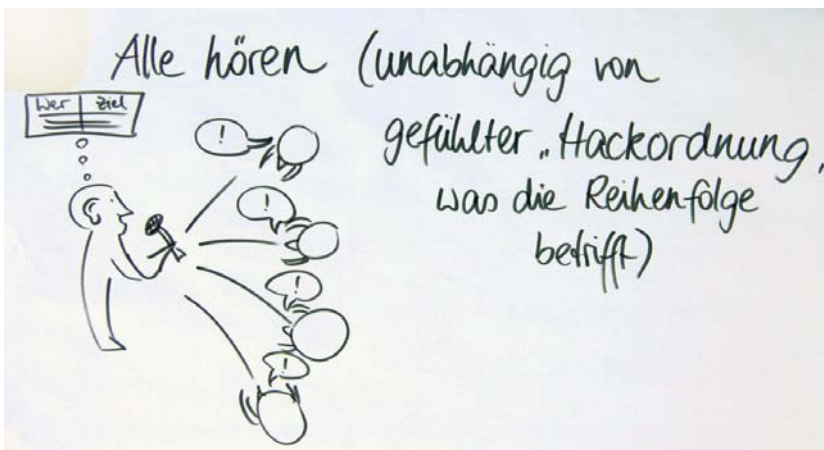 Alle hören (unabhängig von
gefühlter „Hackordnung,
was die Reihenfolge
betrifft)
Wer Ziel
!
!
!
!